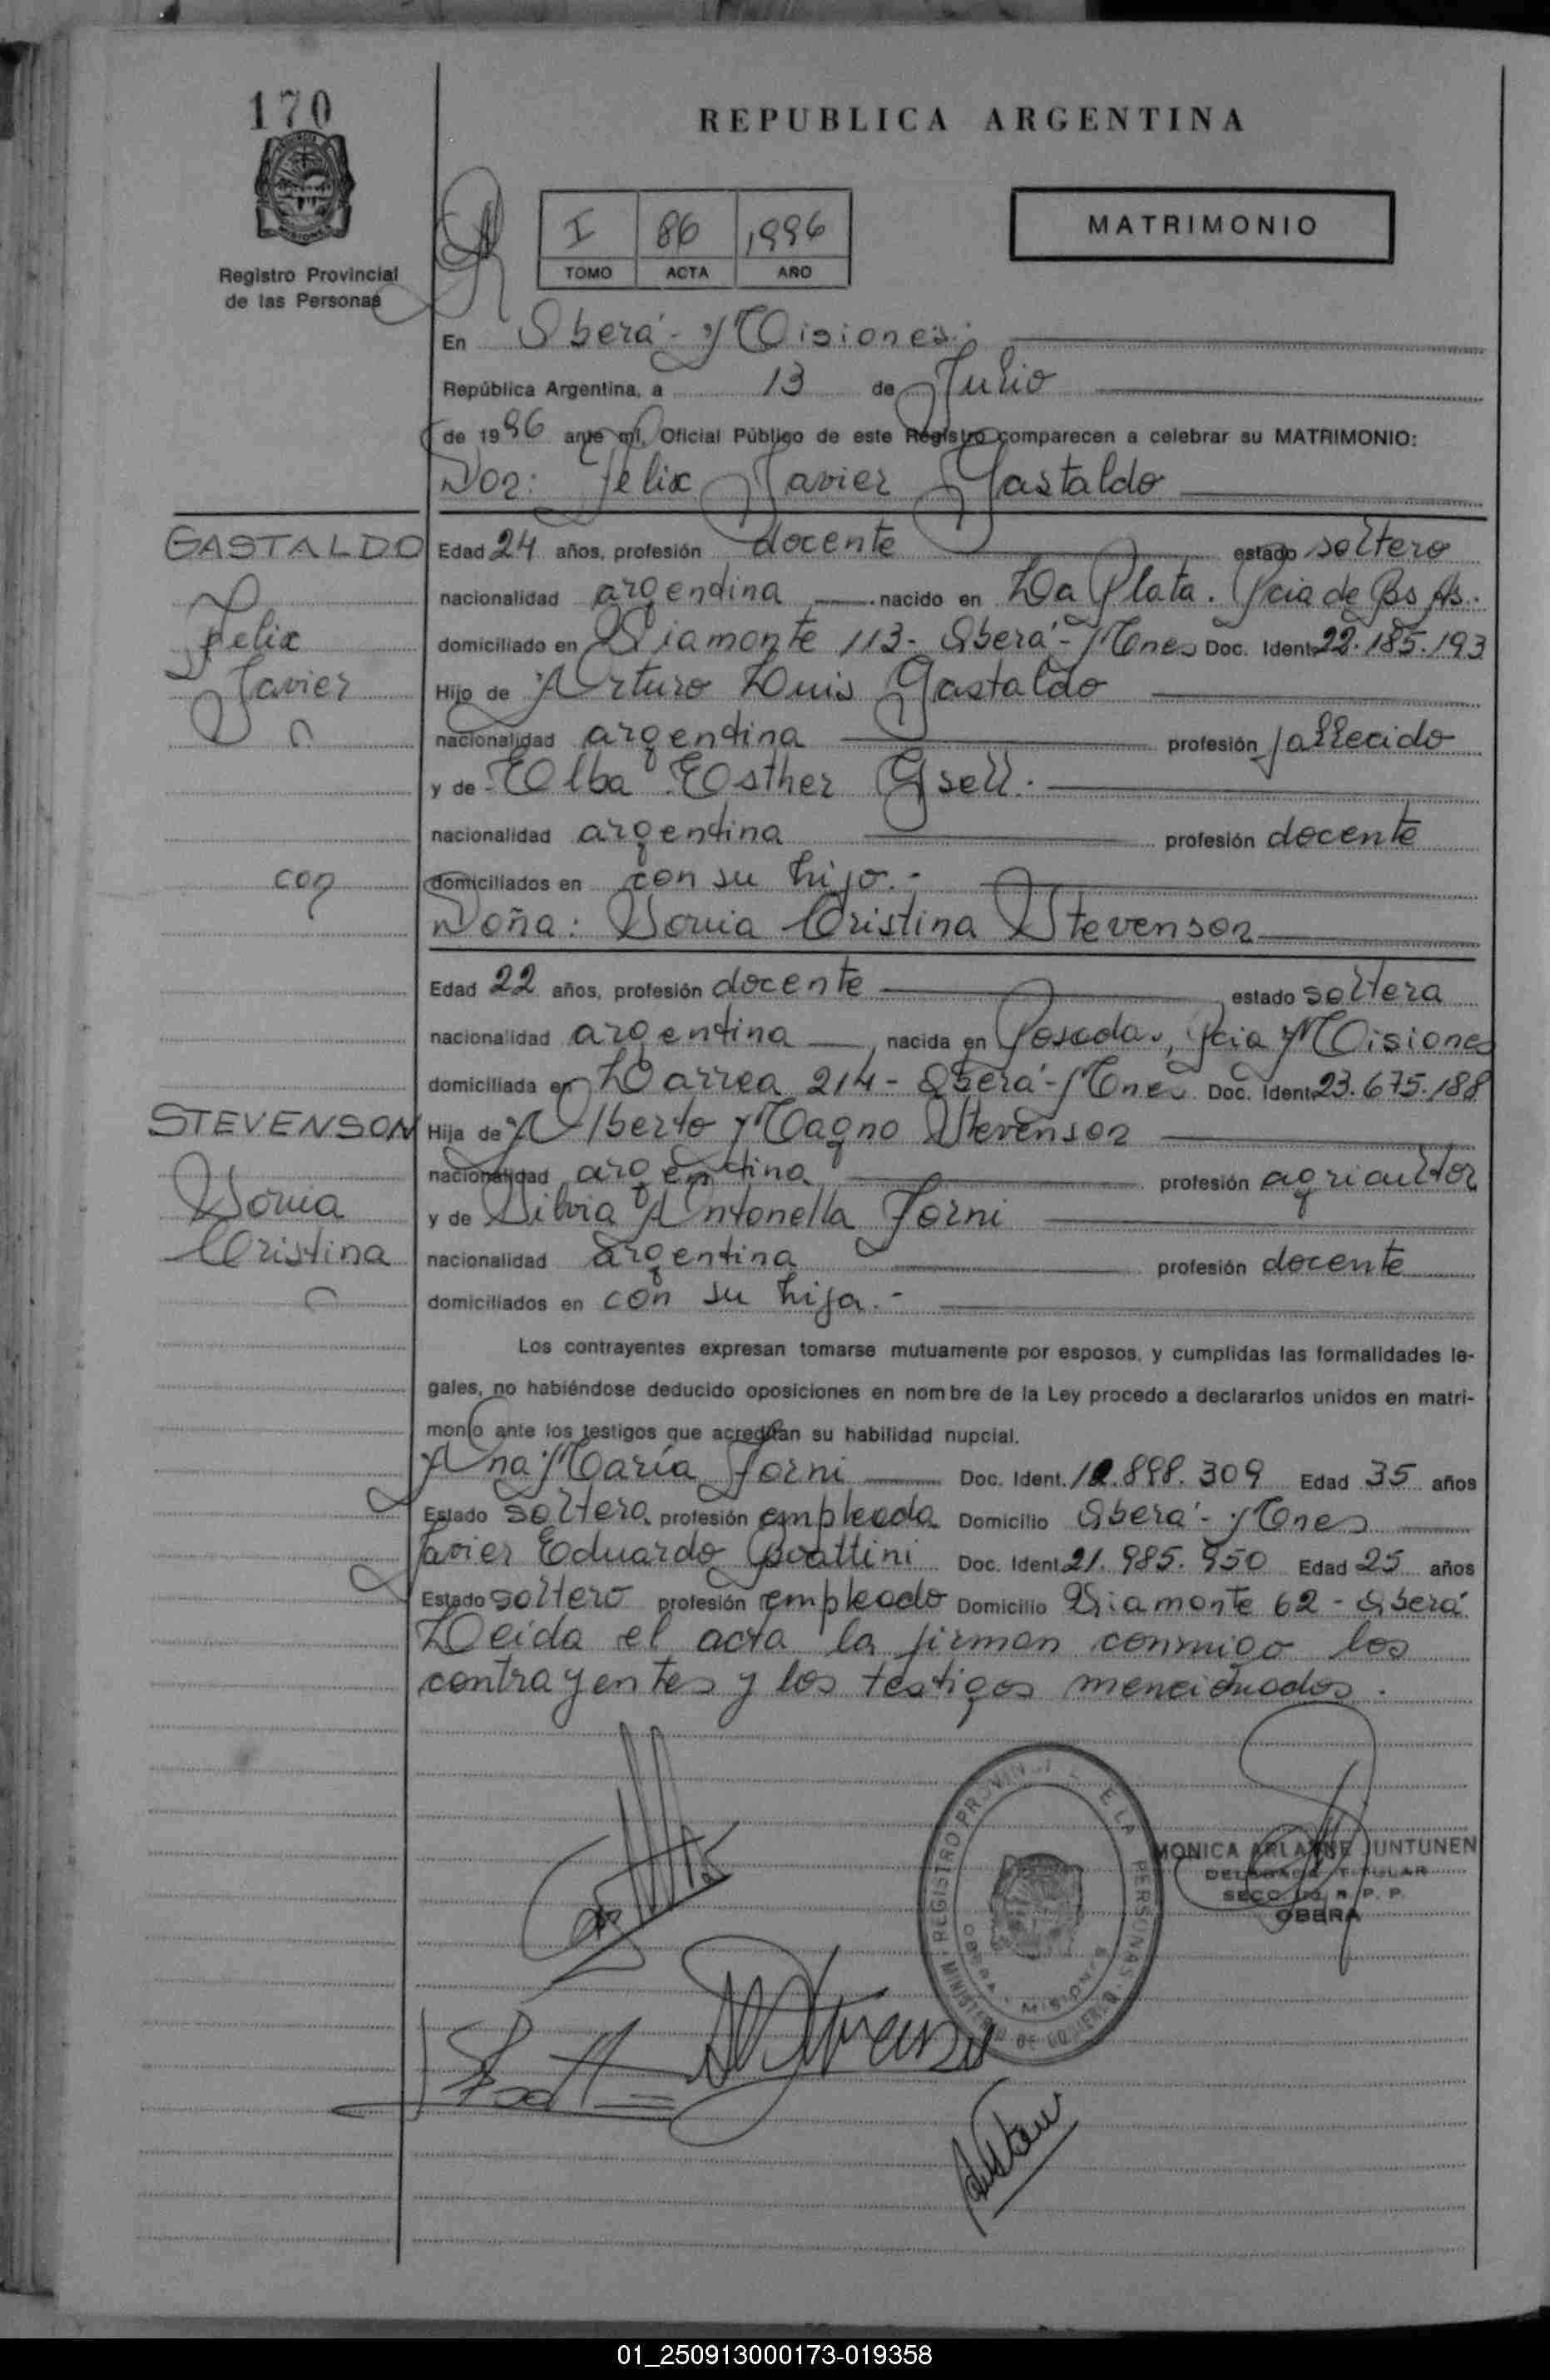 170
REPUBLICA ARGENTINA
MATRIMONIO
I 86 1996
TOMO ACTA AÑO
Registro Provincial
de las Personas
En Oberá - Misiones.
República Argentina, a 13 de Julio
de 1996 ante mí, Oficial Público de este Registro comparecen a celebrar su MATRIMONIO:
Don: Felix Javier Gastaldo
GASTALDO
Felix
Javier
Edad 24 años, profesión docente estado soltero
nacionalidad argentina nacido en La Plata. Pcia de Bs As.
domiciliado en Diamante 113 - Oberá - Mnes Doc. Ident. 22.185.193
Hijo de Arturo Luis Gastaldo
nacionalidad argentina profesión fallecido
y de Elba Esther Gsell.
nacionalidad argentina profesión docente
con
domiciliados en con su hijo.-
Doña: Sonia Cristina Stevenson
Edad 22 años, profesión docente estado soltera
nacionalidad argentina nacida en Posadas, Pcia Misiones
domiciliada en Larrea 214 - Oberá - Mnes Doc. Ident. 23.675.188
STEVENSON
Sonia
Cristina
Hija de Alberto Magno Stevenson
nacionalidad argentina profesión agricultor
y de Silvia Antonella Forni
nacionalidad argentina profesión docente
domiciliados en con su hija.-
Los contrayentes expresan tomarse mutuamente por esposos, y cumplidas las formalidades le-
gales, no habiéndose deducido oposiciones en nombre de la Ley procedo a declararlos unidos en matri-
monio ante los testigos que acreditan su habilidad nupcial.
Ana María Forni Doc. Ident. 12.898.309 Edad 35 años
Estado soltera profesión empleada Domicilio Oberá - Mnes
Javier Eduardo Doc. Ident. 21.985.950 Edad 25 años
Estado soltero profesión empleado Domicilio Diamante 62 - Oberá
Leida el acta la firman conmigo los
contrayentes y los testigos mencionados.
REGISTRO PROVINCIAL DE LA PERSONAS
MINISTERIO DE GOBIERNO
OBERA - MISIONES
MONICA ARLANNE JUNTUNEN
DELEGADA TITULAR
SECC. R. P. P.
OBERA
01_250913000173-019358